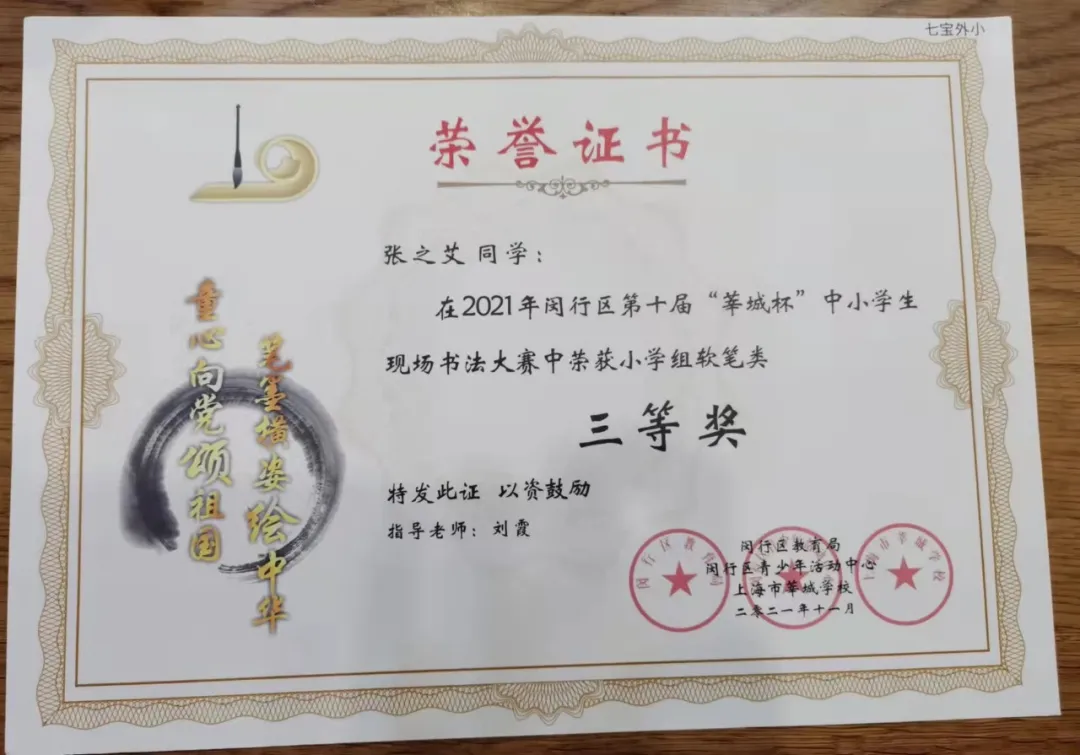 七宝外小
荣誉证书
张之艾 同学：
在2021年闵行区第十届“莘城杯”中小学生
现场书法大赛中荣获小学组软笔类
三等奖
特发此证 以资鼓励
指导老师：刘霞
童心向党颂祖国
笔墨横姿绘中华
闵行区教育局
闵行区青少年活动中心
上海市莘城学校
二零二一年十一月
闵行区教育局
上海市莘城学校